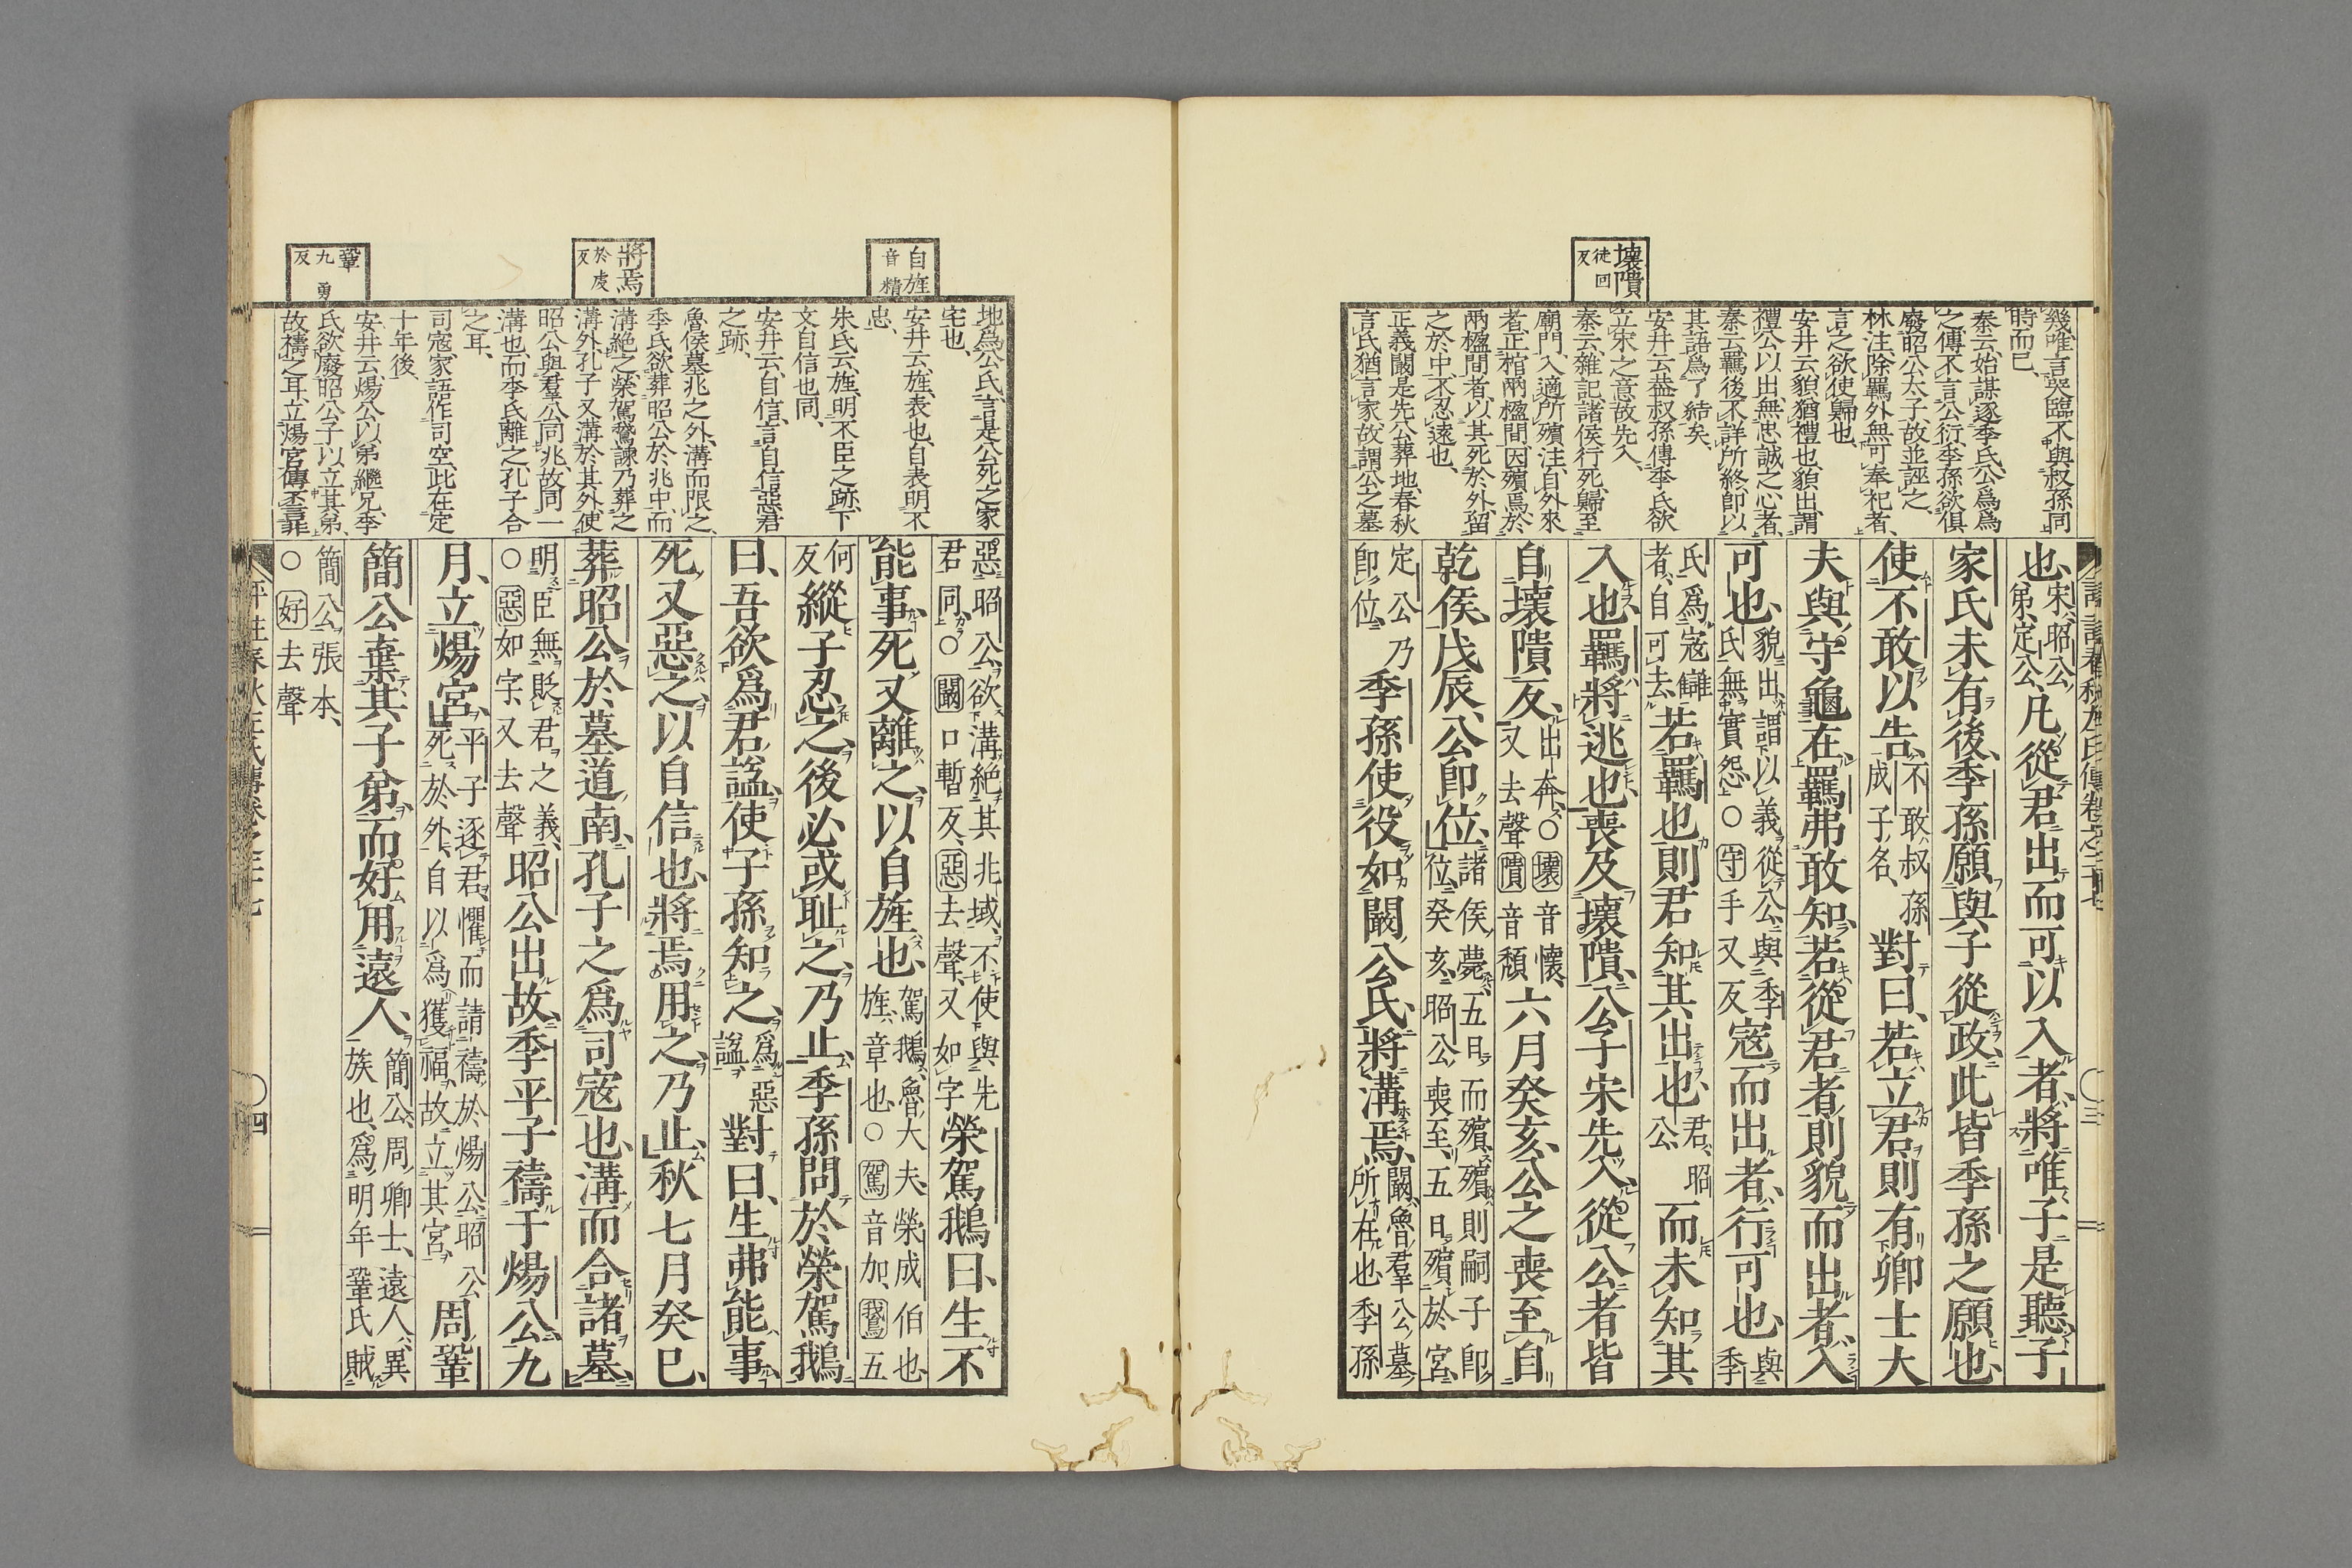 壞隤 徒回反
幾唯言哭臨不與叔孫同
時而已、
秦云、始謀逐季氏、公爲爲
之、傳不言公衍、季孫欲俱
廢昭公太子、故並誣之、
林注、除羈外、無可奉祀者、
言之、欲使歸也、
安井云、貌猶禮也、貌出、謂
禮公以出、無忠誠之心者、
秦云、羈後不詳所終、卽以
其語爲了結矣、
安井云、葢叔孫傳季氏欲
立宋之意、故先入、
秦云、雜記、諸侯行死、歸至
廟門、入適所殯、注、自外來
者、正棺兩楹間、因殯焉、於
兩楹間者、以其死於外、留
之於中、不忍遠也、
正義、闞是先公葬地、春秋
言氏、猶言家、故謂公之墓
也、宋、昭公弟、定公、凡從君出而可以入者、將唯子是聽、子
家氏未有後、季孫願與子從政、此皆季孫之願也、
使不敢以告、不敢、叔孫成子名、對曰、若立君、則有卿士大
夫與守龜在、羈弗敢知、若從君者、則貌而出者、入
可也、貌出、謂以義從公、與季氏無實怨○守手又反 寇而出者、行可也、與季
氏爲寇讎者、自可去 若羈也、則君知其出也、君、昭公 而未知其
入也、羈將逃也、喪及壞隤、公子宋先入、從公者皆
自壞隤反、出奔○壞音懷、又去聲隤音頹 六月癸亥、公之喪至自
乾侯、戊辰、公卽位、諸侯薨、五日而殯、殯則嗣子卽位、癸亥、昭公喪至、五日殯於宮、
定公乃卽位、季孫使役如闞公氏、將溝焉、闞、魯群公墓所在也 季孫
自旌 音精
將焉 於虔反
鞏 九勇反
地爲公氏、言是公死之家
宅也、
安井云、旌、表也、自表明不
忠、
朱氏云、旌、明不臣之跡、下
文自信也同、
安井云、自信、言自信惡君
之跡、
魯侯墓兆之外、溝而限之、
季氏欲葬昭公於兆中、而
溝絶之、榮駕鵞諫、乃葬之
溝外、孔子又溝於其外、使
昭公與羣公同兆、故同一
溝也、而季氏離之、孔子合
之耳、
司寇、家語作司空、此在定
十年後、
安井云、煬公以弟繼兄、季
氏欲廢昭公子、以立其弟、
故禱之耳、立煬宮、傳丕言非
惡昭公、欲溝絶其兆域、不使與先君同○闞口暫反、惡去聲、又如字 榮駕鵝曰、生不
能事、死又離之、以自旌也、駕鵝、魯大夫、榮成伯也、旌、章也○駕音加、鵞五
何反 縱子忍之、後必或耻之、乃止、季孫問於榮駕鵝
曰、吾欲爲君謚、使子孫知之、爲惡謚 對曰、生弗能事、
死又惡之、以自信也、將焉用之、乃止、秋七月癸巳、
葬昭公於墓道南、孔子之爲司寇也、溝而合諸墓、
明臣無貶君之義、○惡如字、又去聲 昭公出、故季平子禱于煬公、九
月、立煬宮、平子逐君、懼而請禱於煬公、昭公死於外、自以爲獲福、故立其宮、 周鞏
簡公棄其子弟、而好用遠人、簡公、周卿士、遠人、異族也、爲明年鞏氏賊
簡公張本、○好去聲
評註春秋左氏傳卷之二十七
三
四